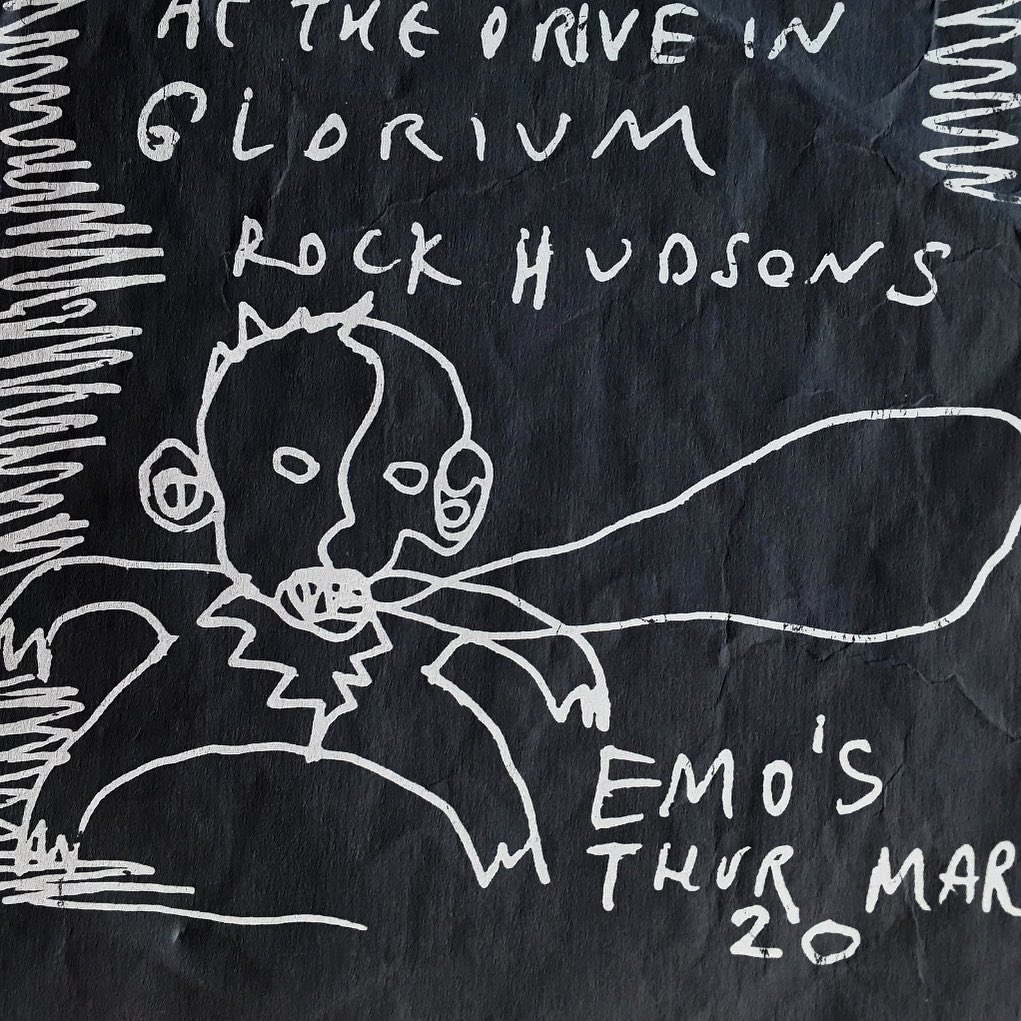 AT THE DRIVE IN
GLORIUM
ROCK HUDSONS
EMO'S
THUR MAR
20